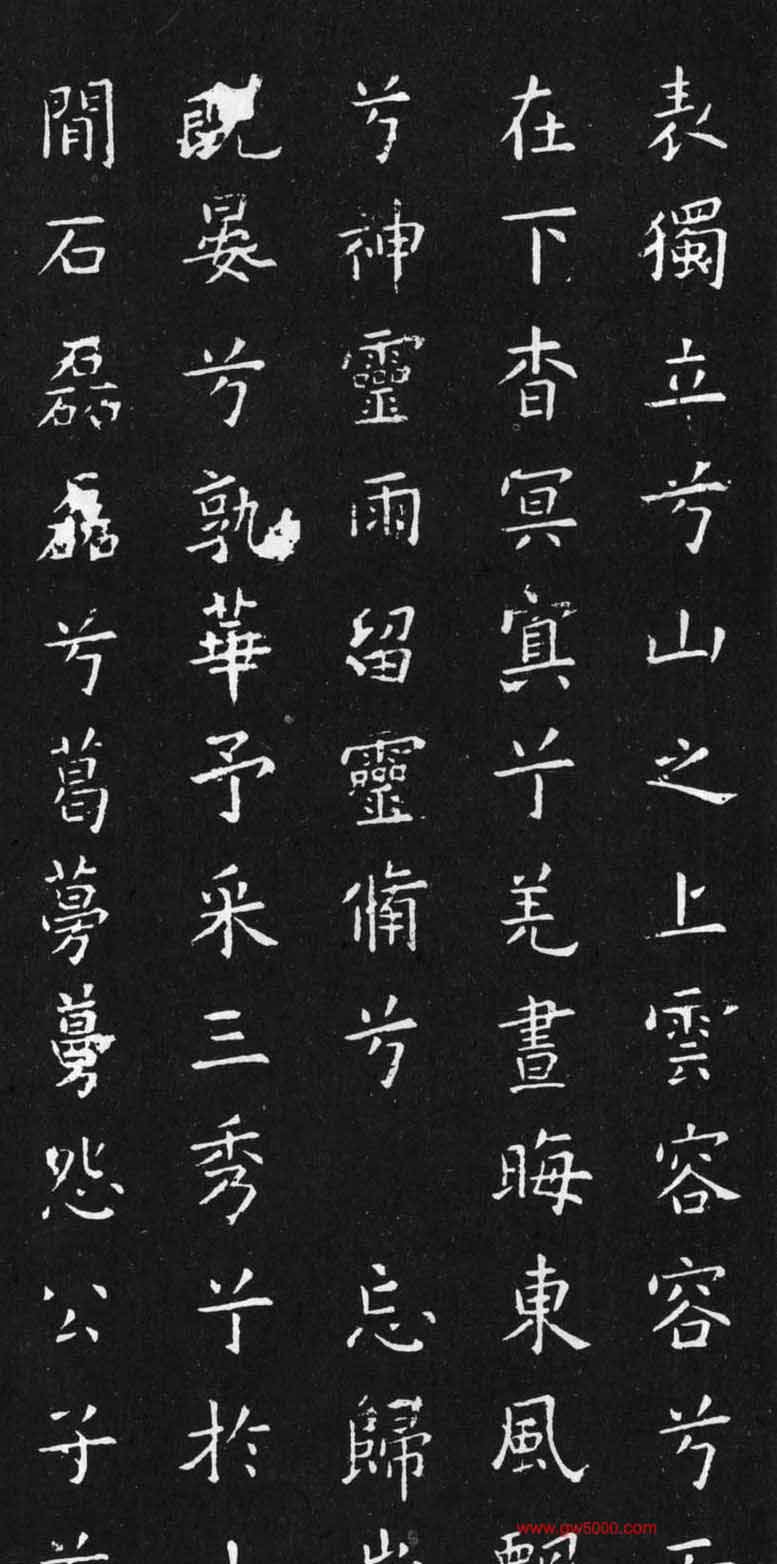 表獨立兮山之上雲容容兮
在下杳冥冥兮羌晝晦東風飄
兮神靈雨留靈脩兮忘歸
既晏兮孰華予采三秀兮於
閒石磊磊兮葛蔓蔓怨公子
www.gw5000.com